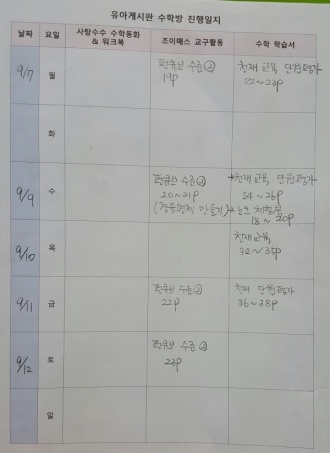 유아게시판 수학방 진행일지
날짜 요일 사탕수수 수학동화 & 워크북 조이매스 교구활동 수학 학습서
9/7 월 펀큐브 수준② 천재교육, 단원평가
19p 22~23p
화
9/9 수 펀큐브 수준② 천재교육, 단원평가
20~21p 24~26p
18~20p
9/10 목 천재교육,
32~35p
9/11 금 펀큐브 수준② 천재 단원평가
22p 36~38p
9/12 토 펀큐브 수준②
23p
일